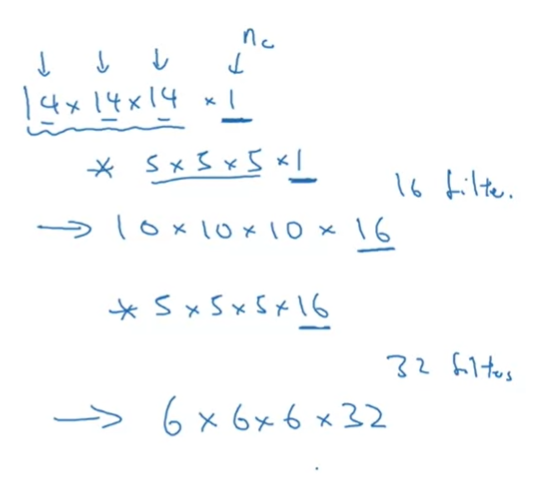 ↓ ↓ ↓ ↓ nc
14 × 14 × 14 × 1
* 5 × 5 × 5 × 1
16 filte.
→ 10 × 10 × 10 × 16
* 5 × 5 × 5 × 16
32 filtes
→ 6 × 6 × 6 × 32